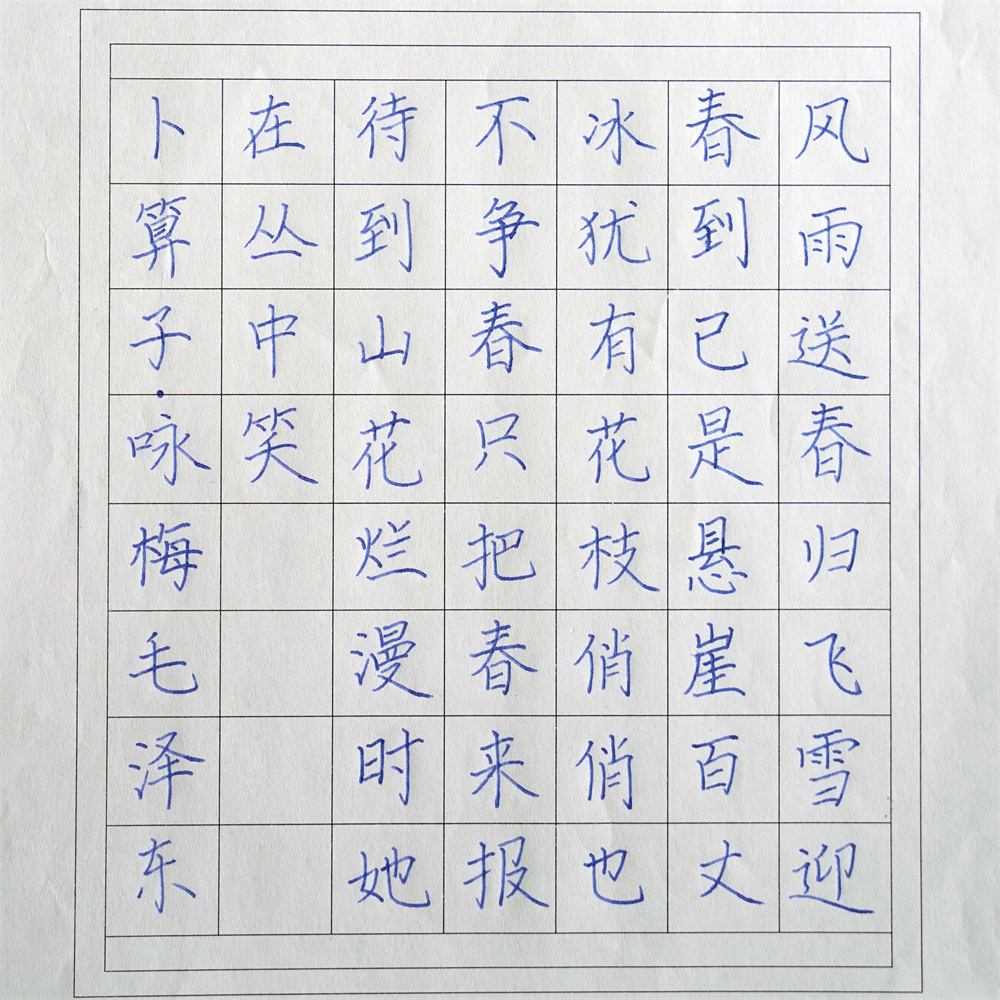 风雨送春归飞雪迎
春到已是悬崖百丈
冰犹有花枝俏俏也
不争春只把春来报
待到山花烂漫时她
在丛中笑
卜算子·咏梅毛泽东